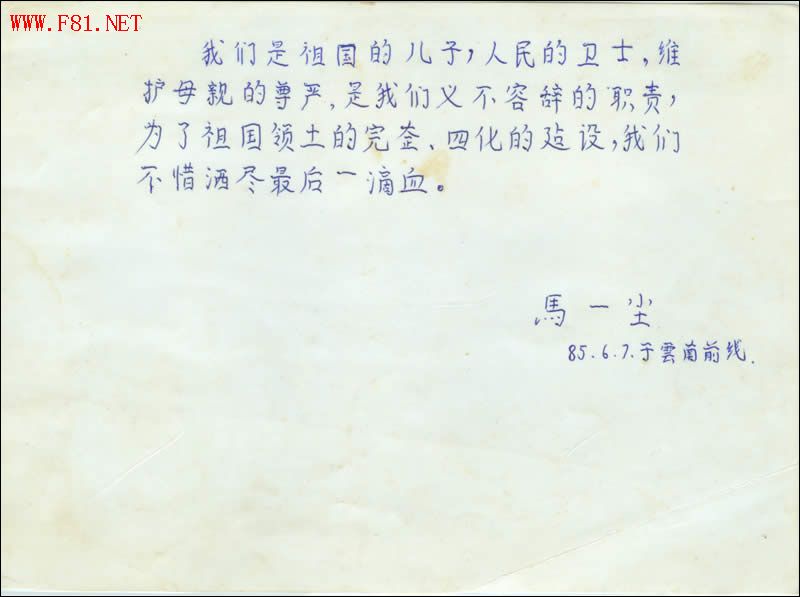 WWW.F81.NET
我们是祖国的儿子，人民的卫士，维
护母親的尊严，是我们义不容辞的职责，
为了祖国领土的完整、四化的建设，我们
不惜洒尽最后一滴血。
馬一尘
85.6.7.于雲南前线.